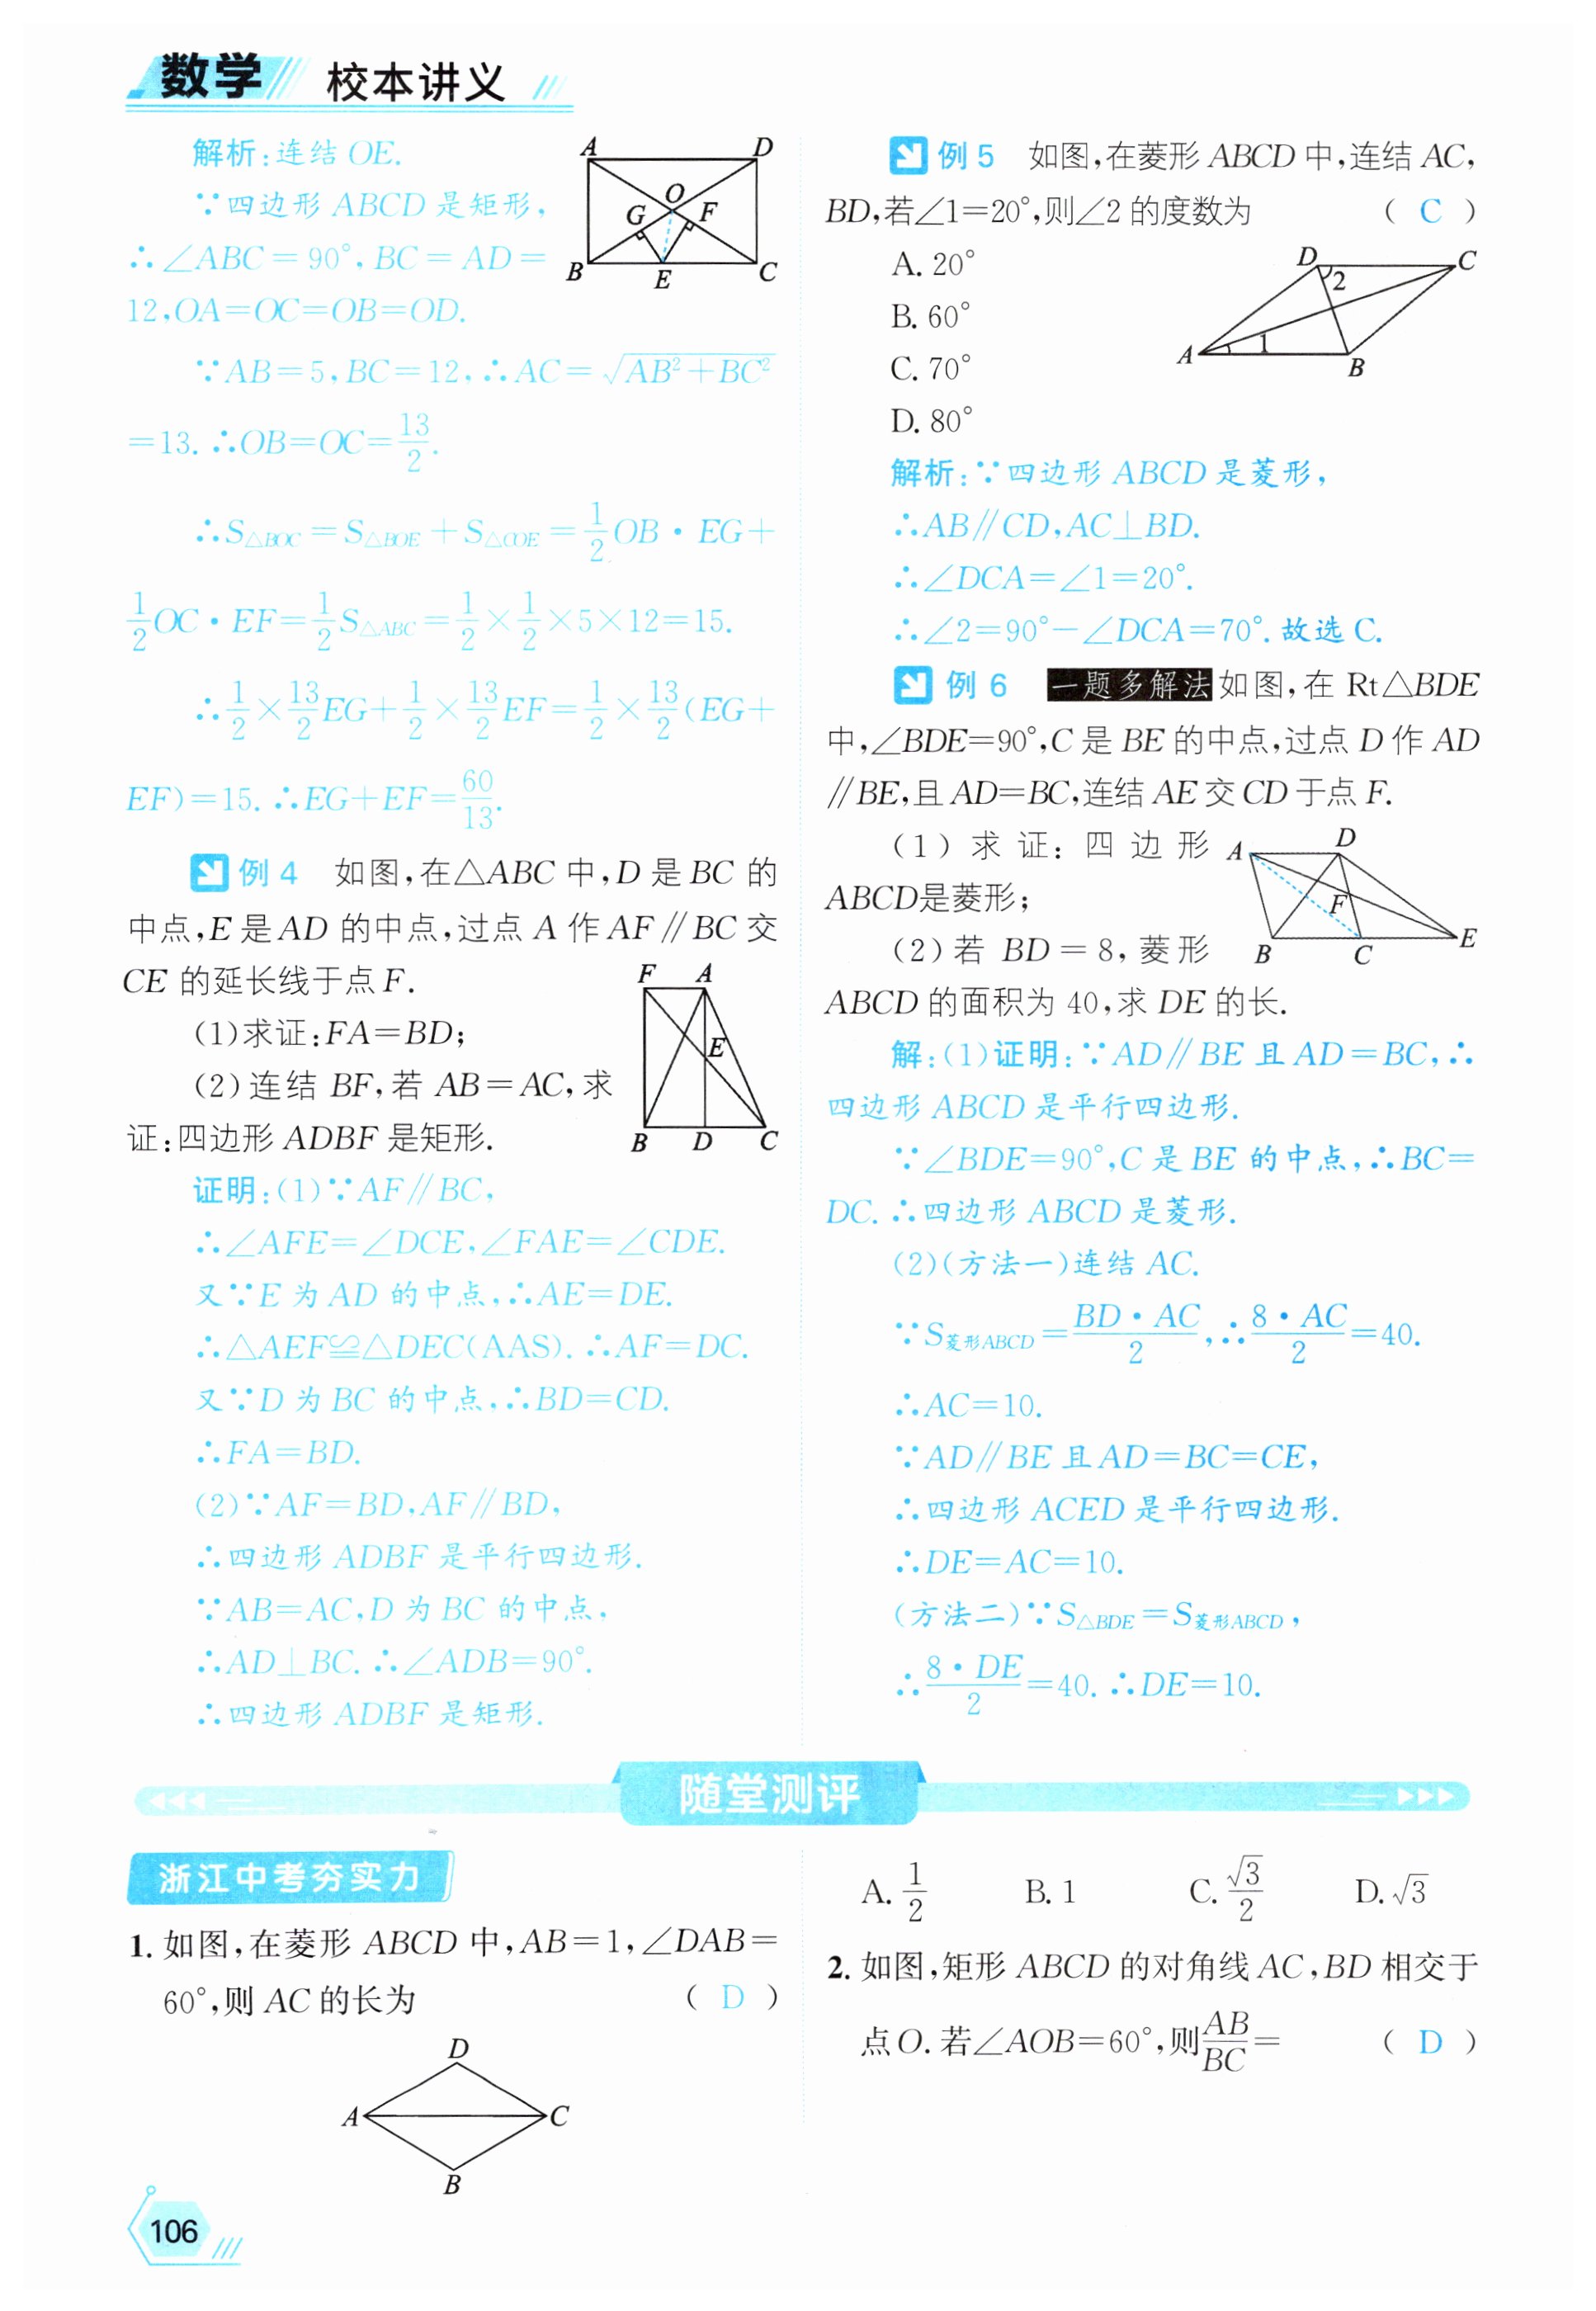 数学 校本讲义
解析:连结 OE.
∵四边形 ABCD 是矩形,
∴∠ABC=90°,BC=AD=
12,OA=OC=OB=OD.
∵AB=5,BC=12,∴AC=√(AB²+BC²)
=13.∴OB=OC=13/2.
∴S△BOC=S△BOE+S△COE=1/2OB·EG+
1/2OC·EF=1/2S△ABC=1/2×1/2×5×12=15.
∴1/2×13/2EG+1/2×13/2EF=1/2×13/2(EG+
EF)=15.∴EG+EF=60/13.
A D
O
G F
B E C
例 4 如图,在△ABC 中,D 是 BC 的
中点,E 是 AD 的中点,过点 A 作 AF∥BC 交
CE 的延长线于点 F.
(1)求证:FA=BD;
(2)连结 BF,若 AB=AC,求
证:四边形 ADBF 是矩形.
F A
E
B D C
证明:(1)∵AF∥BC,
∴∠AFE=∠DCE,∠FAE=∠CDE.
又∵E 为 AD 的中点,∴AE=DE.
∴△AEF≌△DEC(AAS).∴AF=DC.
又∵D 为 BC 的中点,∴BD=CD.
∴FA=BD.
(2)∵AF=BD,AF∥BD,
∴四边形 ADBF 是平行四边形.
∵AB=AC,D 为 BC 的中点,
∴AD⊥BC.∴∠ADB=90°.
∴四边形 ADBF 是矩形.
例 5 如图,在菱形 ABCD 中,连结 AC,
BD,若∠1=20°,则∠2 的度数为 ( C )
A. 20°
B. 60°
C. 70°
D. 80°
D C
2
A 1 B
解析:∵四边形 ABCD 是菱形,
∴AB∥CD,AC⊥BD.
∴∠DCA=∠1=20°.
∴∠2=90°-∠DCA=70°.故选 C.
例 6 一题多解法 如图,在 Rt△BDE
中,∠BDE=90°,C 是 BE 的中点,过点 D 作 AD
∥BE,且 AD=BC,连结 AE 交 CD 于点 F.
(1)求证:四边形
ABCD是菱形;
(2)若 BD=8,菱形
ABCD 的面积为 40,求 DE 的长.
A D
F
B C E
解:(1)证明:∵AD∥BE 且 AD=BC,∴
四边形 ABCD 是平行四边形.
∵∠BDE=90°,C 是 BE 的中点,∴BC=
DC.∴四边形 ABCD 是菱形.
(2)(方法一)连结 AC.
∵S菱形ABCD=BD·AC/2,∴8·AC/2=40.
∴AC=10.
∵AD∥BE 且 AD=BC=CE,
∴四边形 ACED 是平行四边形.
∴DE=AC=10.
(方法二)∵S△BDE=S菱形ABCD,
∴8·DE/2=40.∴DE=10.
随堂测评
浙江中考夯实力
1. 如图,在菱形 ABCD 中,AB=1,∠DAB=
60°,则 AC 的长为 ( D )
D
A C
B
A. 1/2 B. 1 C. √3/2 D. √3
2. 如图,矩形 ABCD 的对角线 AC,BD 相交于
点 O.若∠AOB=60°,则AB/BC= ( D )
106